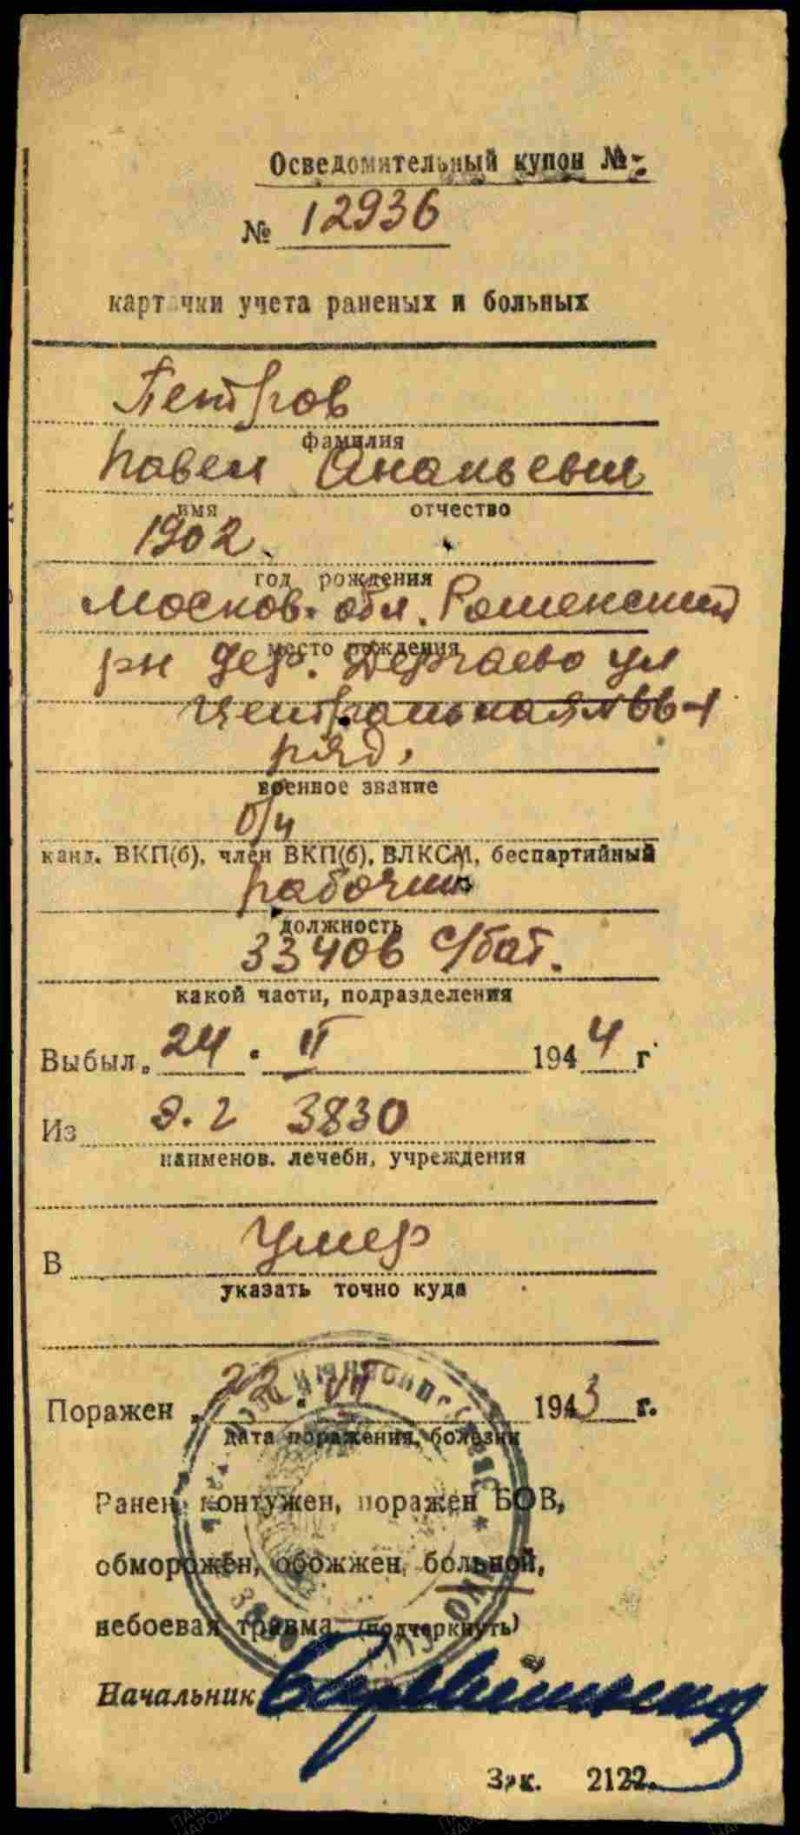 Осведомительный купон №
№ 12936
карточки учета раненых и больных
Петров
фамилия
Павел Ананьевич
имя отчество
1902.
год рождения
Москов. обл. Раменский
место рождения
рн дер. Дергаево ул
Центральная № 66-1
ряд.
военное звание
б/ч
канд. ВКП(б), член ВКП(б), ВЛКСМ, беспартийный
рабочий
должность
33406 с/бат.
какой части, подразделения
Выбыл. 24. II 1944 г
Из э. г 3830
наименов. лечебн, учреждения
В Умер
указать точно куда
Поражен 22. VII 1943 г.
дата поражения, болезни
Ранен, контужен, поражен БОВ,
обморожен, обожжен, больной,
небоевая травма (подчеркнуть)
Начальник
Зак. 2122.